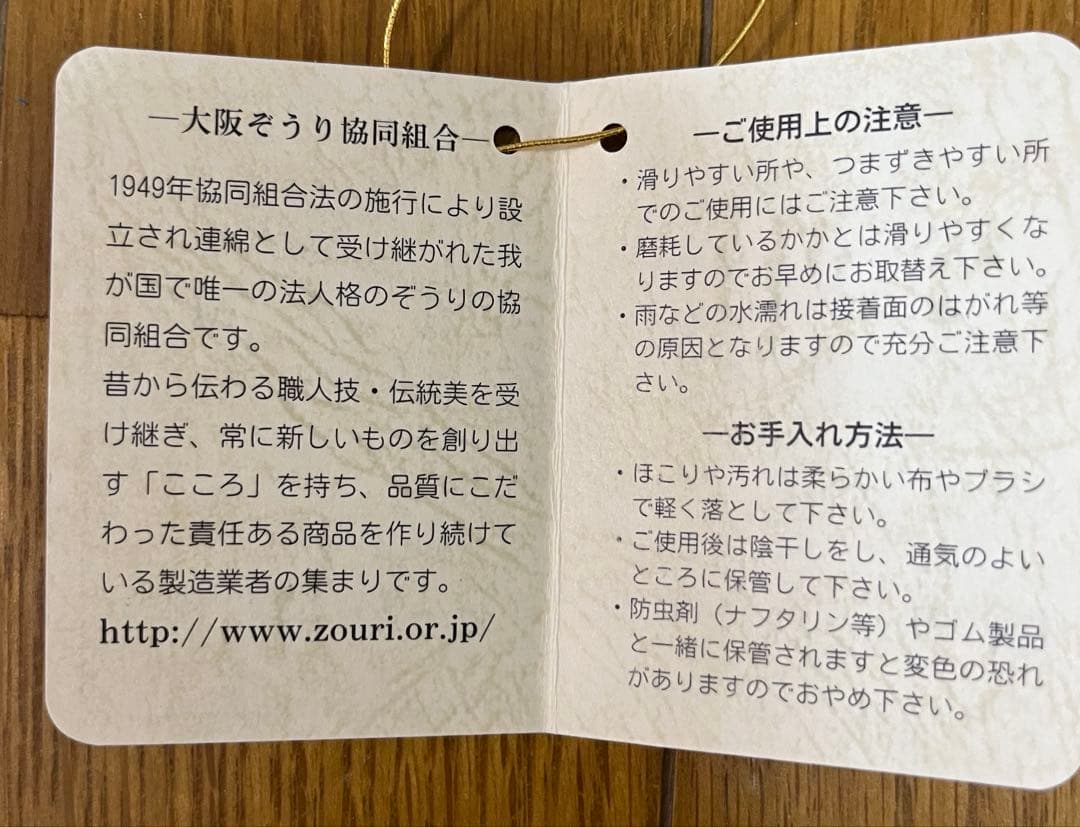 ―大阪ぞうり協同組合―
1949年協同組合法の施行により設
立され連綿として受け継がれた我
が国で唯一の法人格のぞうりの協
同組合です。
昔から伝わる職人技・伝統美を受
け継ぎ、常に新しいものを創り出
す「こころ」を持ち、品質にこだ
わった責任ある商品を作り続けて
いる製造業者の集まりです。
http://www.zouri.or.jp/
―ご使用上の注意―
・滑りやすい所や、つまずきやすい所
でのご使用にはご注意下さい。
・磨耗しているかかとは滑りやすくな
りますのでお早めにお取替え下さい。
・雨などの水濡れは接着面のはがれ等
の原因となりますので充分ご注意下
さい。
―お手入れ方法―
・ほこりや汚れは柔らかい布やブラシ
で軽く落として下さい。
・ご使用後は陰干しをし、通気のよい
ところに保管して下さい。
・防虫剤（ナフタリン等）やゴム製品
と一緒に保管されますと変色の恐れ
がありますのでおやめ下さい。